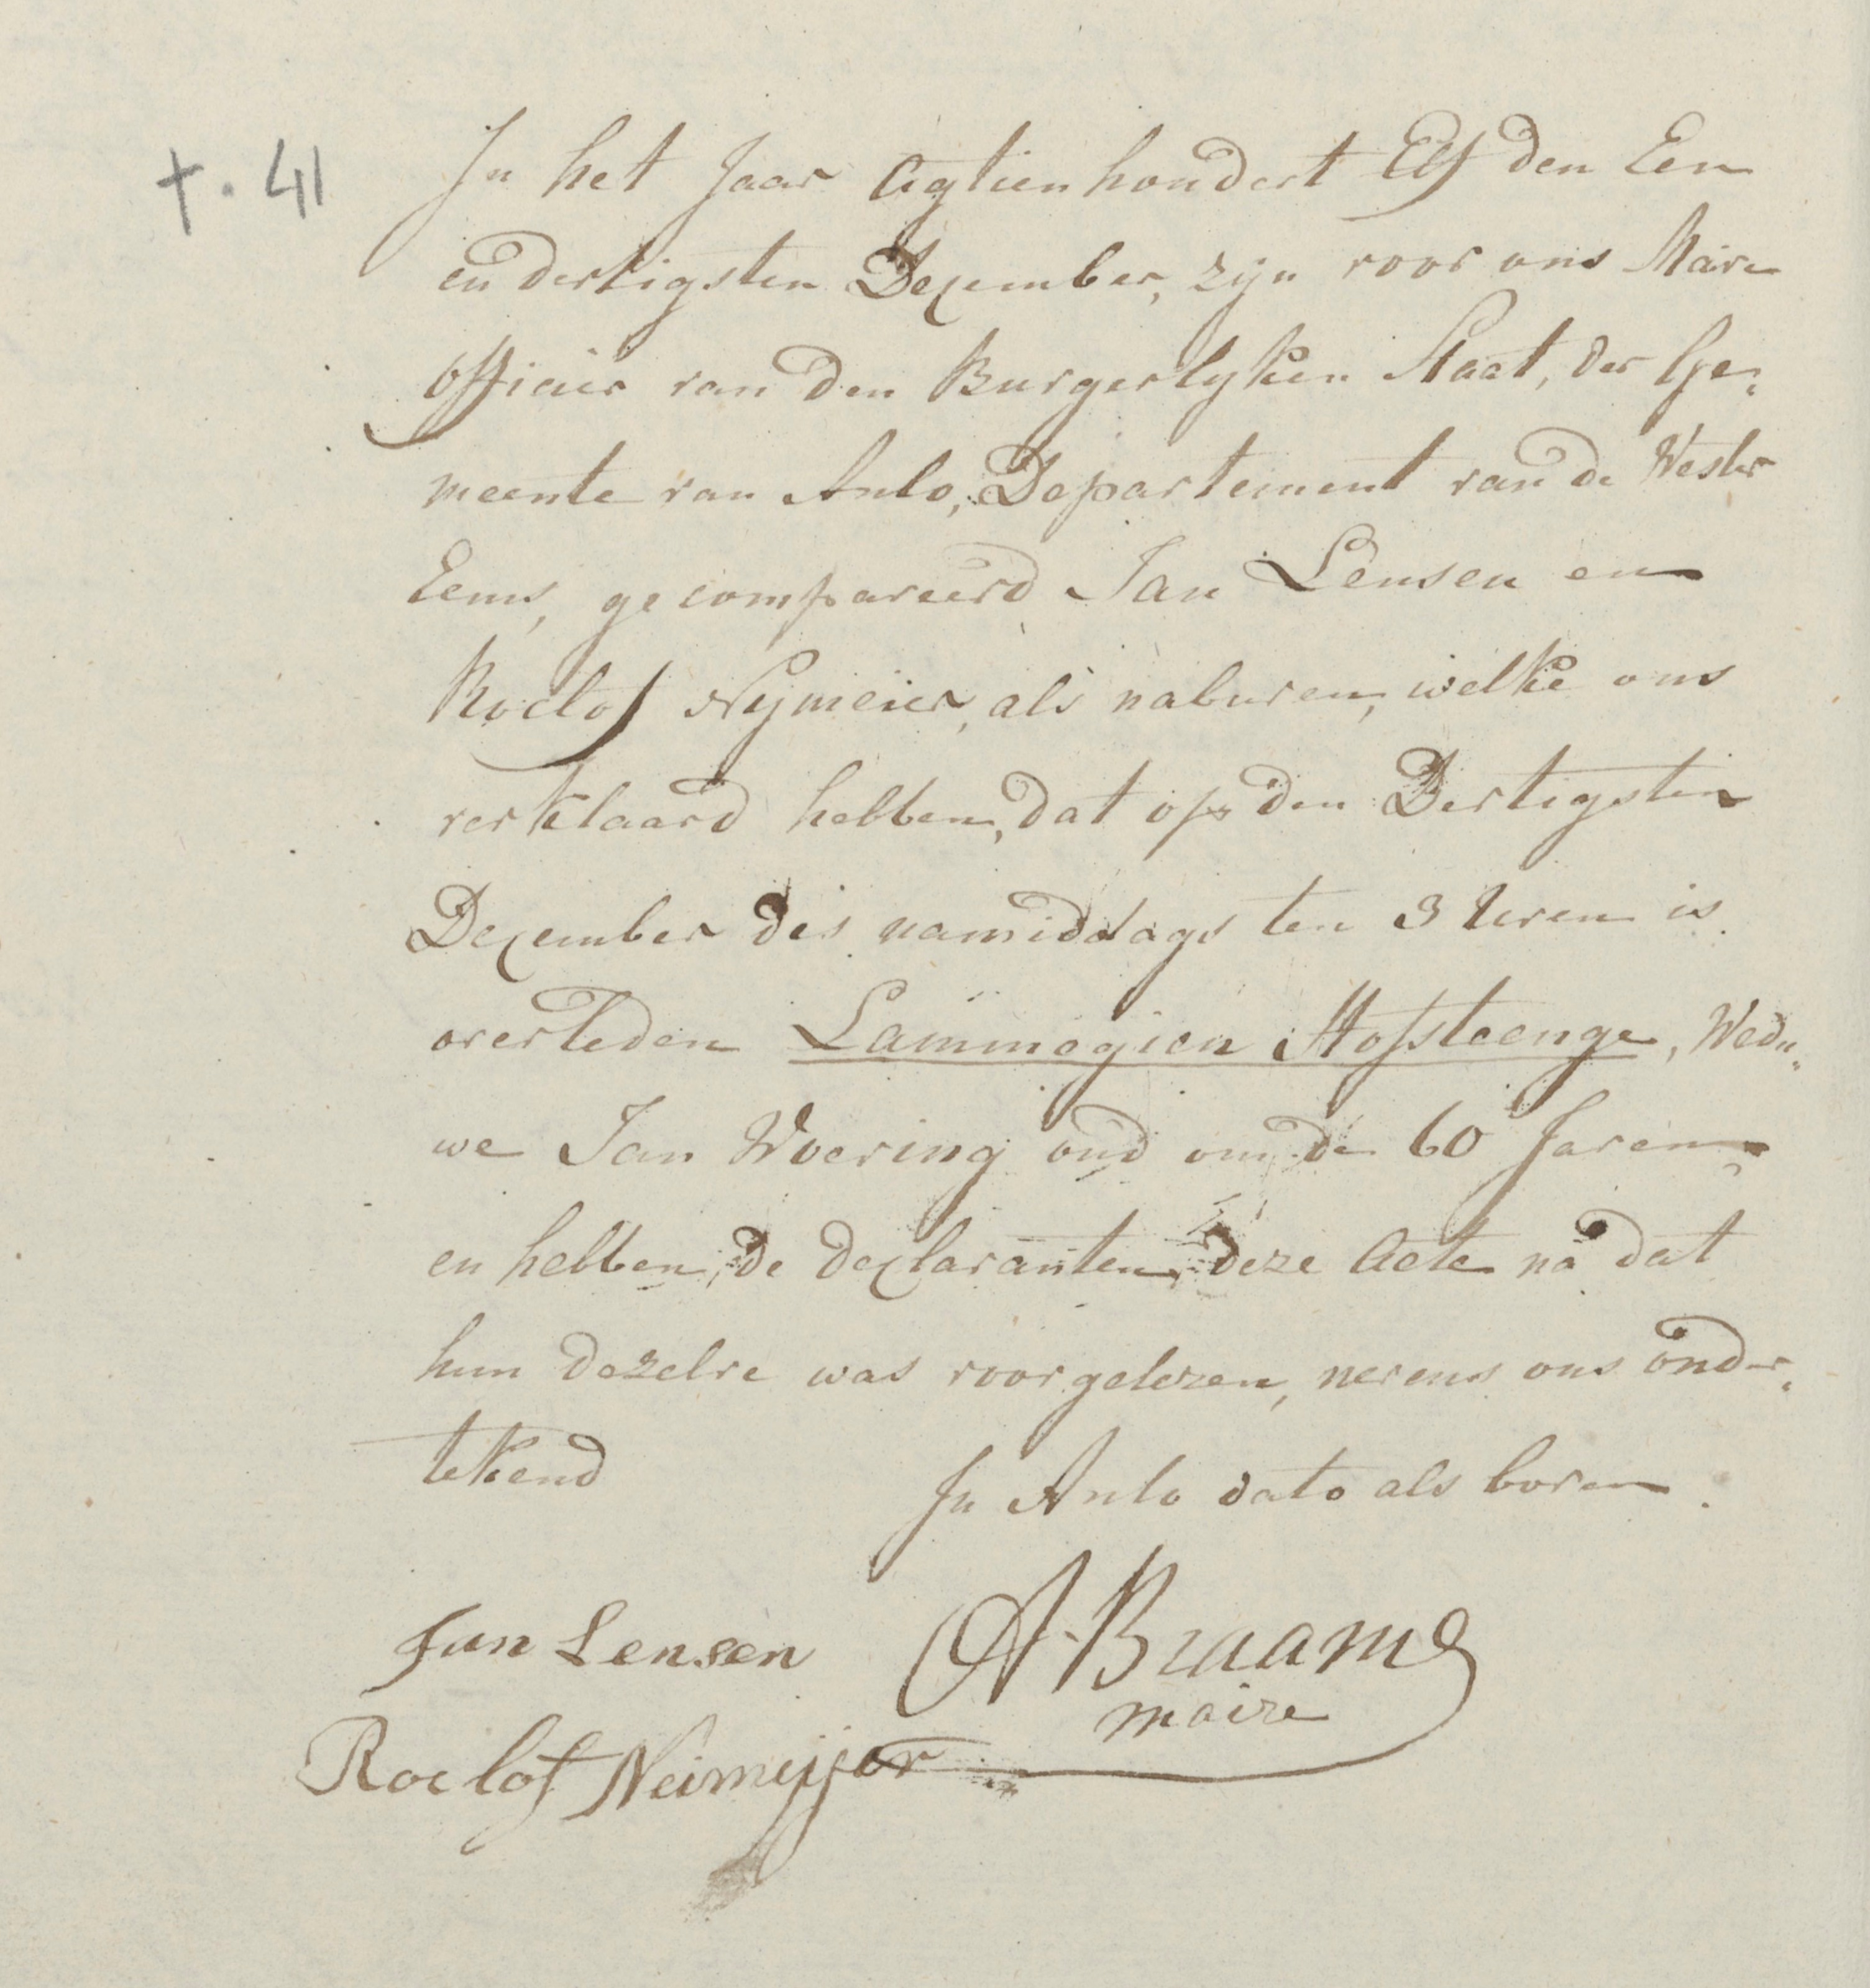 †. 41
In het Jaar Agtienhondert Elf den Een
en dertigsten December, zijn voor ons Maire
Officier van den Burgerlyken Staat, der Ge„
meente van Anlo, Departement van de Wester
Eems, gecompareerd Jan Lensen en
Roelof Nijmeier, als naburen, welke ons
verklaard hebben, dat op den Dertigsten
December des namiddags ten 3 Uren is
overleden Lammegien Hofsteenge, Wedu„
we Jan Woering oud om de 60 Jaren
en hebben, de declaranten, deze Acte na dat
hun dezelve was voorgelezen, nevens ons onder„
tekend
In Anlo dato als boven.
Jan Lensen
A. Braams
maire
Roelof Neimeijer